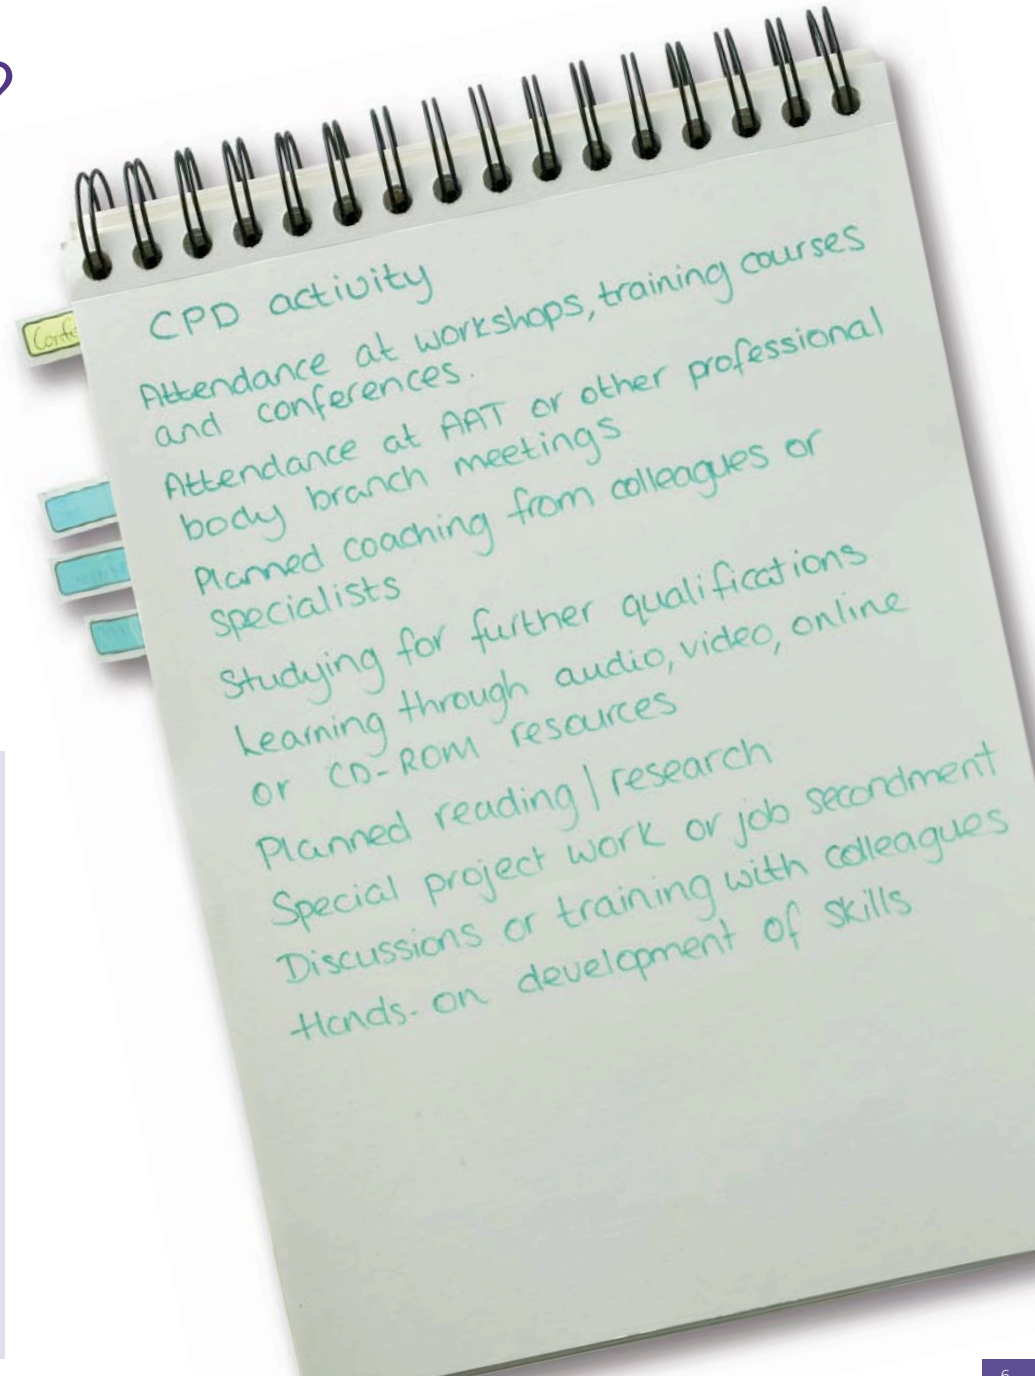 CPD activity
Attendance at workshops, training courses
and conferences.
Attendance at AAT or other professional
body branch meetings
Planned coaching from colleagues or
specialists
Studying for further qualifications
Learning through audio, video, online
or CD-ROM resources
Planned reading | research
Special project work or job secondment
Discussions or training with colleagues
Hands-on development of skills
6